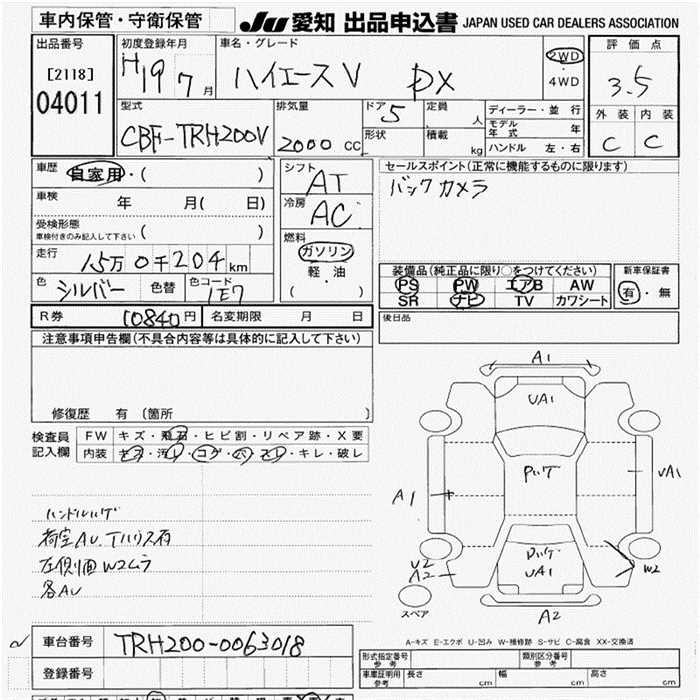 車内保管・守衛保管 JU 愛知 出品申込書 JAPAN USED CAR DEALERS ASSOCIATION
出品番号
[2118]
04011
初度登録年月
H19 7月
車名・グレード
ハイエースV DX
2WD
4WD
評価点
3.5
外装 内装
C C
型式
CBF-TRH200V
排気量
2000 CC
ドア 5
形状
定員 人
積載 kg
ディーラー・並行
モデル年式 年
ハンドル 左・右
車歴 自家用・( )
車検 年 月( 日)
受検形態
車検付きのみ記入して下さい ( )
走行 15万0千204km
色 シルバー 色替 色コード 1E7
シフト AT
冷房 AC
燃料
ガソリン
軽・油
( )
セールスポイント(正常に機能するものに限ります)
バックカメラ
装備品(純正品に限り○をつけてください)
PS PW エアB AW
SR ナビ TV カワシート
新車保証書
有・無
R券 10840円 名変期限 月 日
後日品
注意事項申告欄(不具合内容等は具体的に記入して下さい)
修復歴 有(箇所 )
検査員記入欄
FW キズ・飛石・ヒビ割・リペア跡・X要
内装 キズ・汚レ・コゲ・穴・スレ・キレ・破レ
ハンドルハゲ
荷室AU.Tハウス有
左側面W2ムラ
各AU
A1
UA1
Pハゲ
UA1
A1
Dハゲ
UA1
U2
A2
W2
A2
スペア
A-キズ E-エクボ U-凹み W-補修跡 S-サビ C-腐食 XX-交換済
車台番号 TRH200-0063018
登録番号
形式指定番号 参考
類別区分番号 参考
車庫証明用 参考 長さ cm 幅 cm 高さ cm